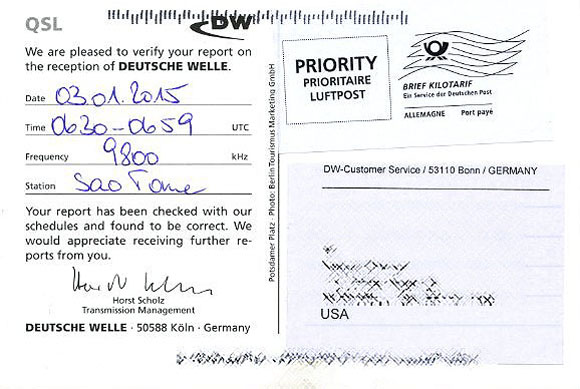 QSL
DW
We are pleased to verify your report on
the reception of DEUTSCHE WELLE.
Date 03.01.2015
Time 0630-0659 UTC
Frequency 9800 kHz
Station Sao Tome
Your report has been checked with our
schedules and found to be correct. We
would appreciate receiving further re-
ports from you.
Horst Scholz
Transmission Management
DEUTSCHE WELLE · 50588 Köln · Germany
Potsdamer Platz - Photo: Berlin Tourismus Marketing GmbH
PRIORITY
PRIORITAIRE
LUFTPOST
BRIEF KILOTARIF
Ein Service der Deutschen Post
ALLEMAGNE Port payé
DW-Customer Service / 53110 Bonn / GERMANY
USA